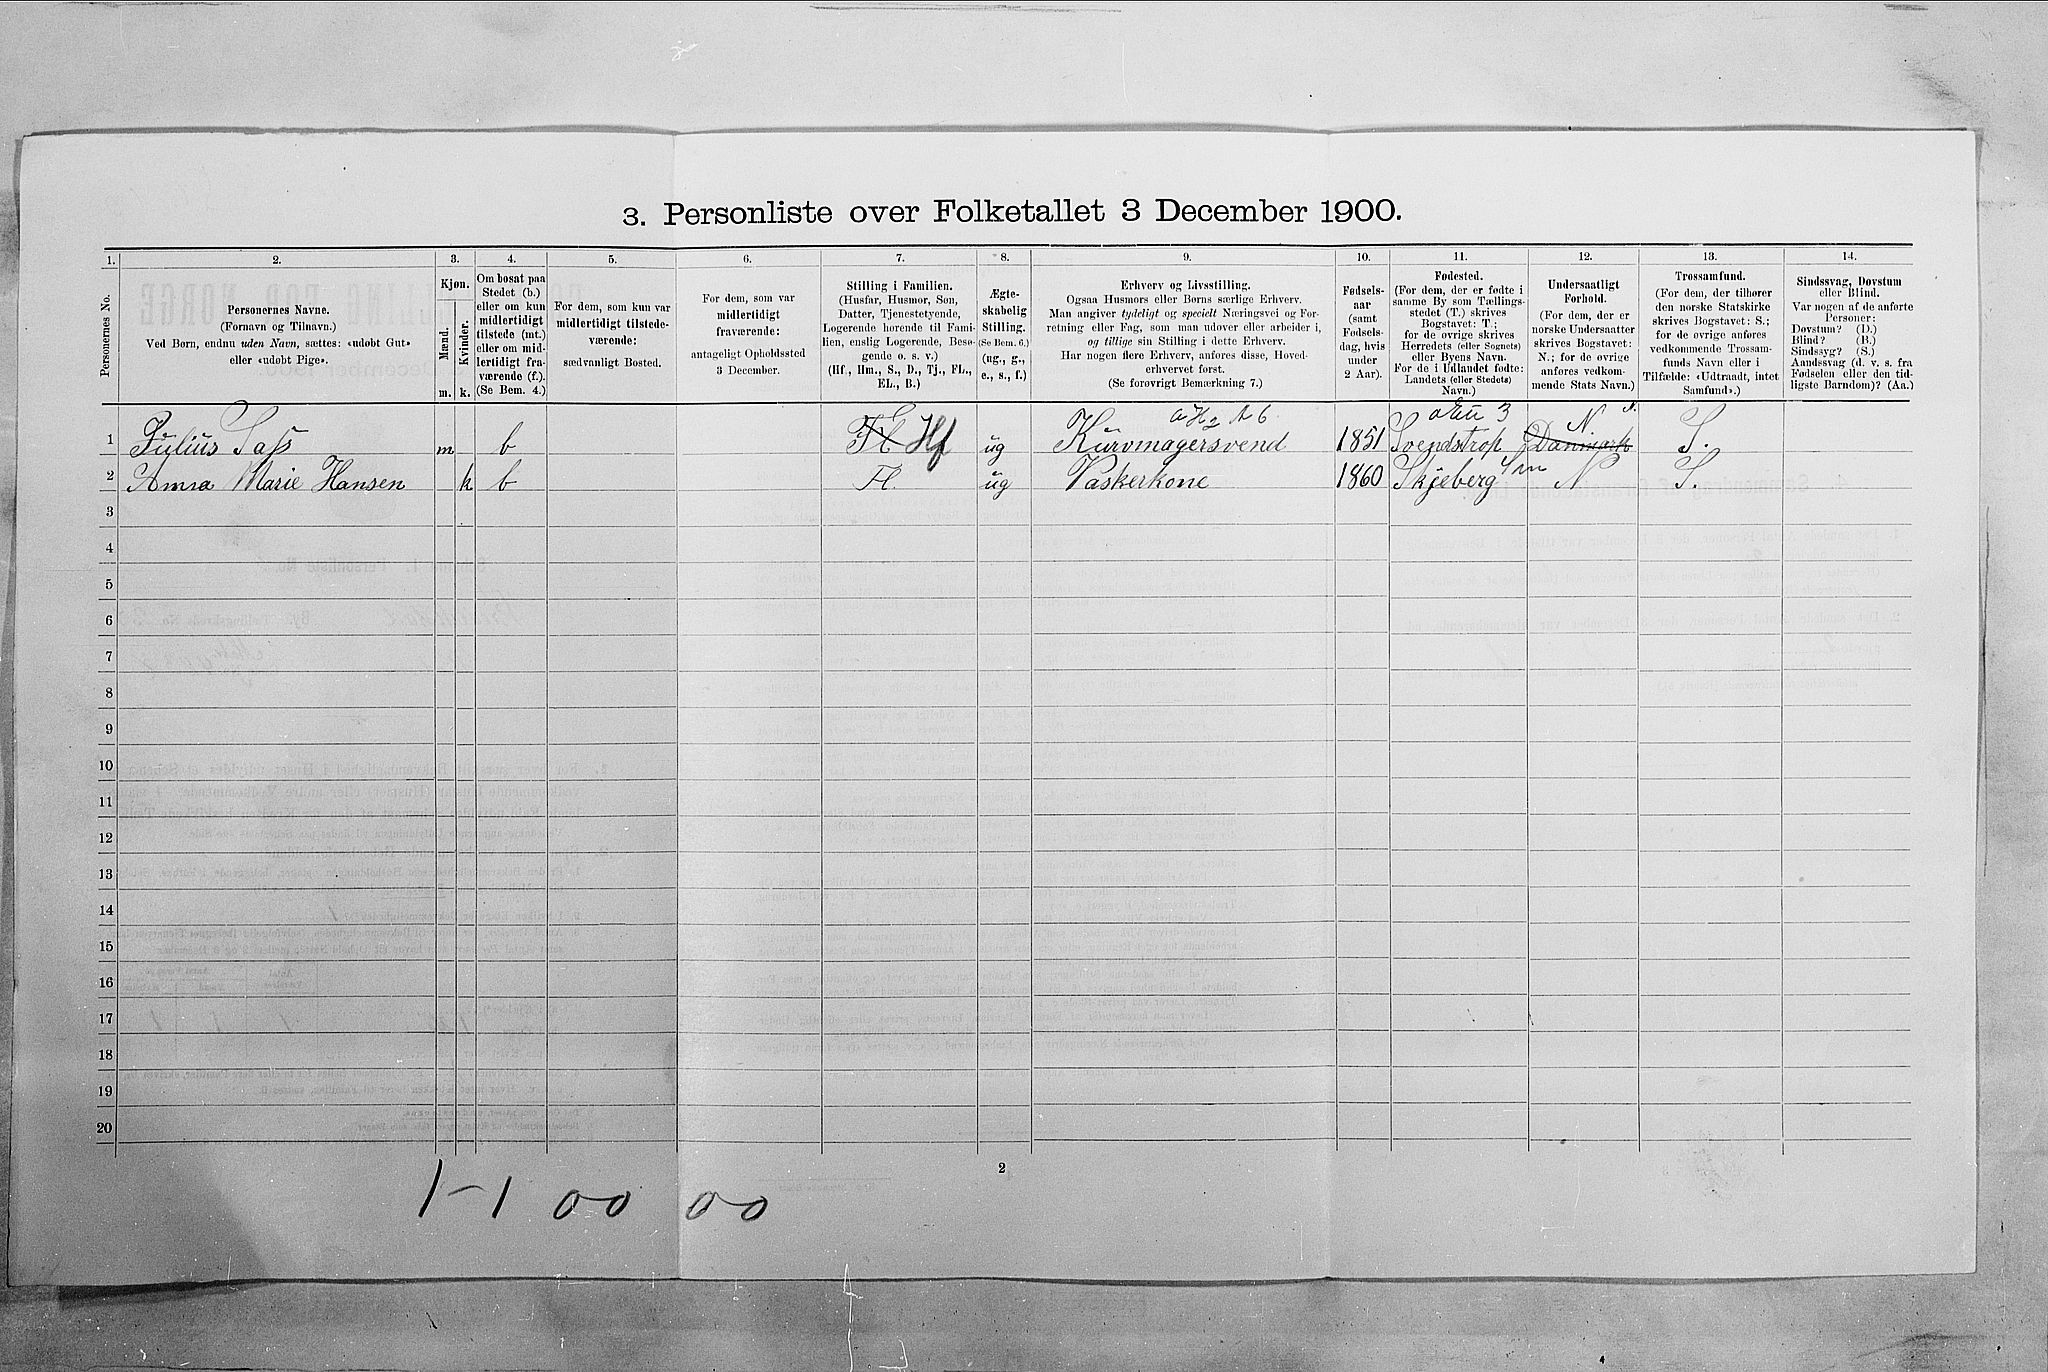 3. Personliste over Folketallet 3 December 1900.
1. 2. 3. 4. 5. 6. 7. 8. 9. 10. 11. 12. 13. 14.
Personernes No.
Personernes Navne.
(Fornavn og Tilnavn.)
Ved Børn, endnu uden Navn, sættes: «udøbt Gut»
eller «udøbt Pige».
Kjøn.
Mænd. Kvinder.
m. k.
Om bosat paa
Stedet (b.)
eller om kun
midlertidigt
tilstede (mt.)
eller om mid-
lertidigt fra-
værende (f.).
(Se Bem. 4.)
For dem, som kun var
midlertidigt tilstede-
værende:
sædvanligt Bosted.
For dem, som var
midlertidigt
fraværende:
antageligt Opholdssted
3 December.
Stilling i Familien.
(Husfar, Husmor, Søn,
Datter, Tjenestetyende,
Logerende hørende til Fami-
lien, enslig Logerende, Besø-
gende o. s. v.)
(Hf., Hm., S., D., Tj., FL.,
EL., B.)
Ægte-
skabelig
Stilling.
(Se Bem. 6.)
(ug., g.,
e., s., f.)
Erhverv og Livsstilling.
Ogsaa Husmors eller Børns særlige Erhverv.
Man angiver tydeligt og specielt Næringsvei og For-
retning eller Fag, som man udøver eller arbeider i,
og tillige sin Stilling i dette Erhverv.
Har nogen flere Erhverv, anføres disse, Hoved-
erhvervet først.
(Se forøvrigt Bemærkning 7.)
Fødsels-
aar
(samt
Fødsels-
dag, hvis
under
2 Aar).
Fødested.
(For dem, der er fødte i
samme By som Tællings-
stedet (T.) skrives
Bogstavet: T.;
for de øvrige skrives
Herredets (eller Sognets)
eller Byens Navn.
For de i Udlandet fødte:
Landets (eller Stedets)
Navn.)
Undersaatligt
Forhold.
(For dem, der er
norske Undersaatter
skrives Bogstavet:
N.; for de øvrige
anføres vedkom-
mende Stats Navn.)
Trossamfund.
(For dem, der tilhører
den norske Statskirke
skrives Bogstavet: S.;
for de øvrige anføres
vedkommende Trossam-
funds Navn eller i
Tilfælde: «Udtraadt, intet
Samfund».)
Sindssvag, Døvstum
eller Blind.
Var nogen af de anførte
Personer:
Døvstum? (D.)
Blind? (B.)
Sindssyg? (S.)
Aandssvag (d. v. s. fra
Fødselen eller den tid-
ligste Barndom)? (Aa.)
1 Julius Sass m b Fl Hf ug Kurvmagersvend 1851 Svendstrop Danmark N S.
2 Anna Marie Hansen k b Fl. ug Vaskerkone 1860 Skjeberg N S.
3
4
5
6
7
8
9
10
11
12
13
14
15
16
17
18
19
20
2
1 - 1 00 00